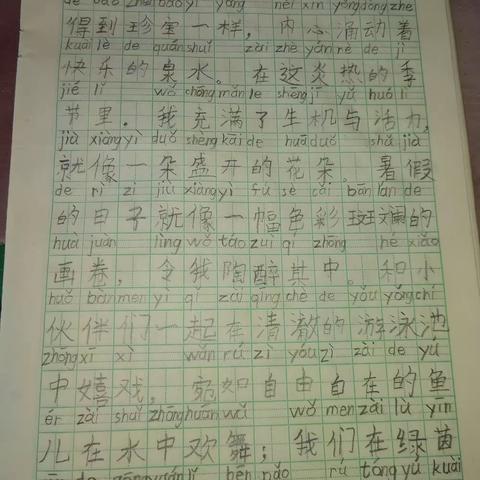 得到珍宝一样，内心涌动着
kuài lè de quán shuǐ zài zhè yán rè de jì
快乐的泉水。在这炎热的季
jié lǐ wǒ chōng mǎn le shēng jī yǔ huó lì
节里。我充满了生机与活力，
jiù xiàng yì duǒ shèng kāi de huā duǒ shǔ jià
就像一朵盛开的花朵。暑假
de rì zi jiù xiàng yì fú sè cǎi bān lán de
的日子就像一幅色彩斑斓的
huà juàn lìng wǒ táo zuì qí zhōng hé xiǎo
画卷，令我陶醉其中。和小
huǒ bàn men yì qǐ zài qīng chè de yóu yǒng chí
伙伴们一起在清澈的游泳池
zhōng xī xì wǎn rú zì yóu zì zài de yú
中嬉戏，宛如自由自在的鱼
ér zài shuǐ zhōng huān wǔ wǒ men zài lǜ yīn
儿在水中欢舞；我们在绿茵